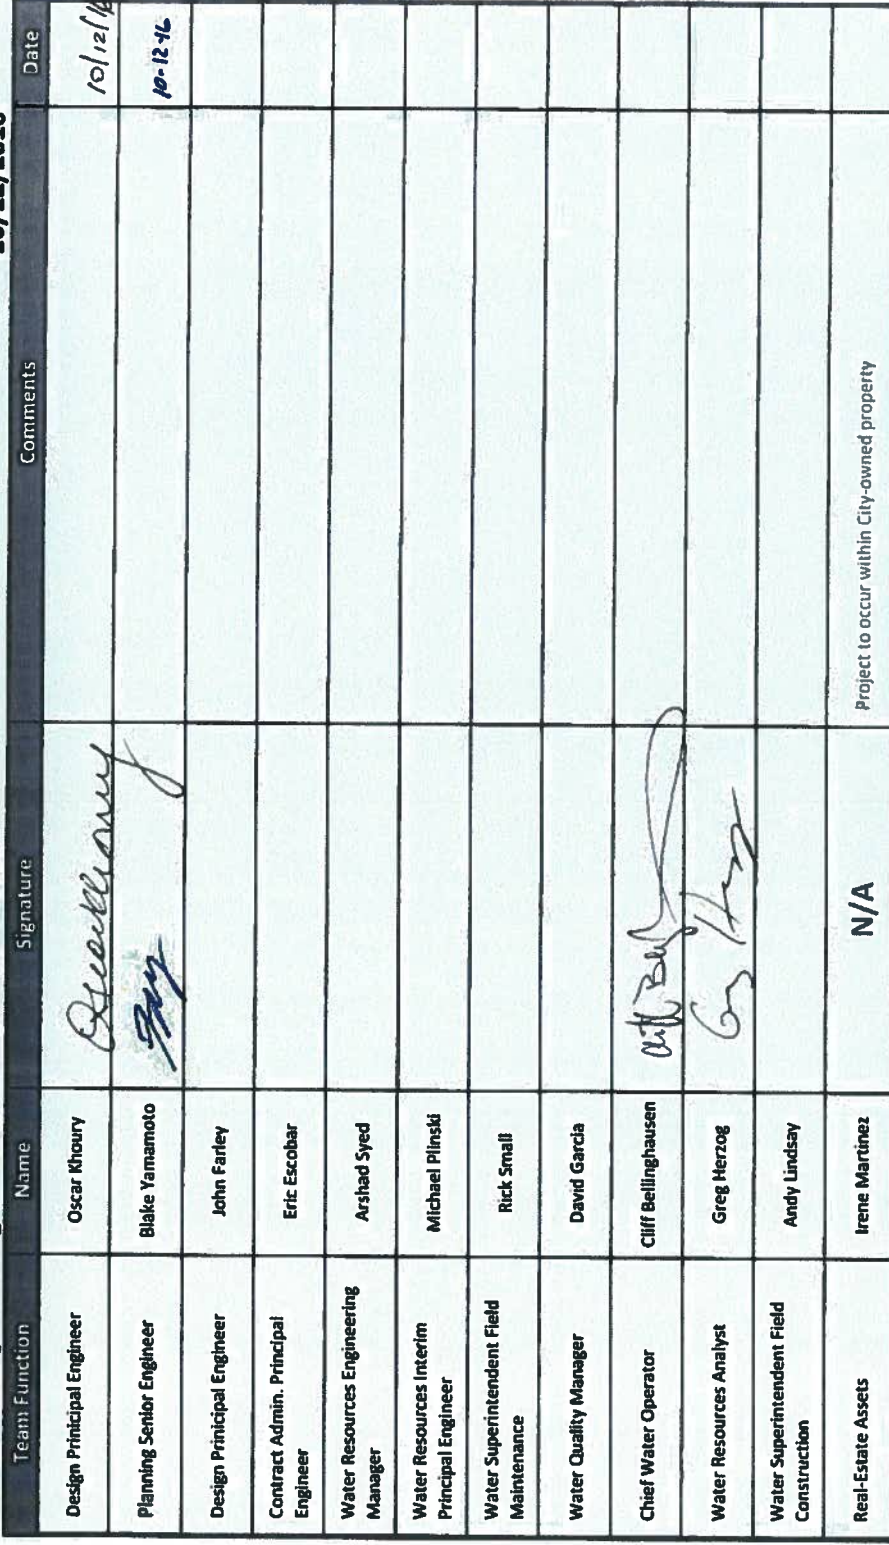 Team Function Name Signature Comments Date
Design Prinicipal Engineer Oscar Khoury 10/12/16
Planning Senior Engineer Blake Yamamoto 10-12-16
Design Prinicipal Engineer John Farley
Contract Admin. Principal
Engineer
Eric Escobar
Water Resources Engineering
Manager
Arshad Syed
Water Resources Interim
Principal Engineer
Michael Plinski
Water Superintendent Field
Maintenance
Rick Small
Water Quality Manager David Garcia
Chief Water Operator Cliff Bellinghausen
Water Resources Analyst Greg Herzog
Water Superintendent Field
Construction
Andy Lindsay
Real-Estate Assets Irene Martinez N/A Project to occur within City-owned property